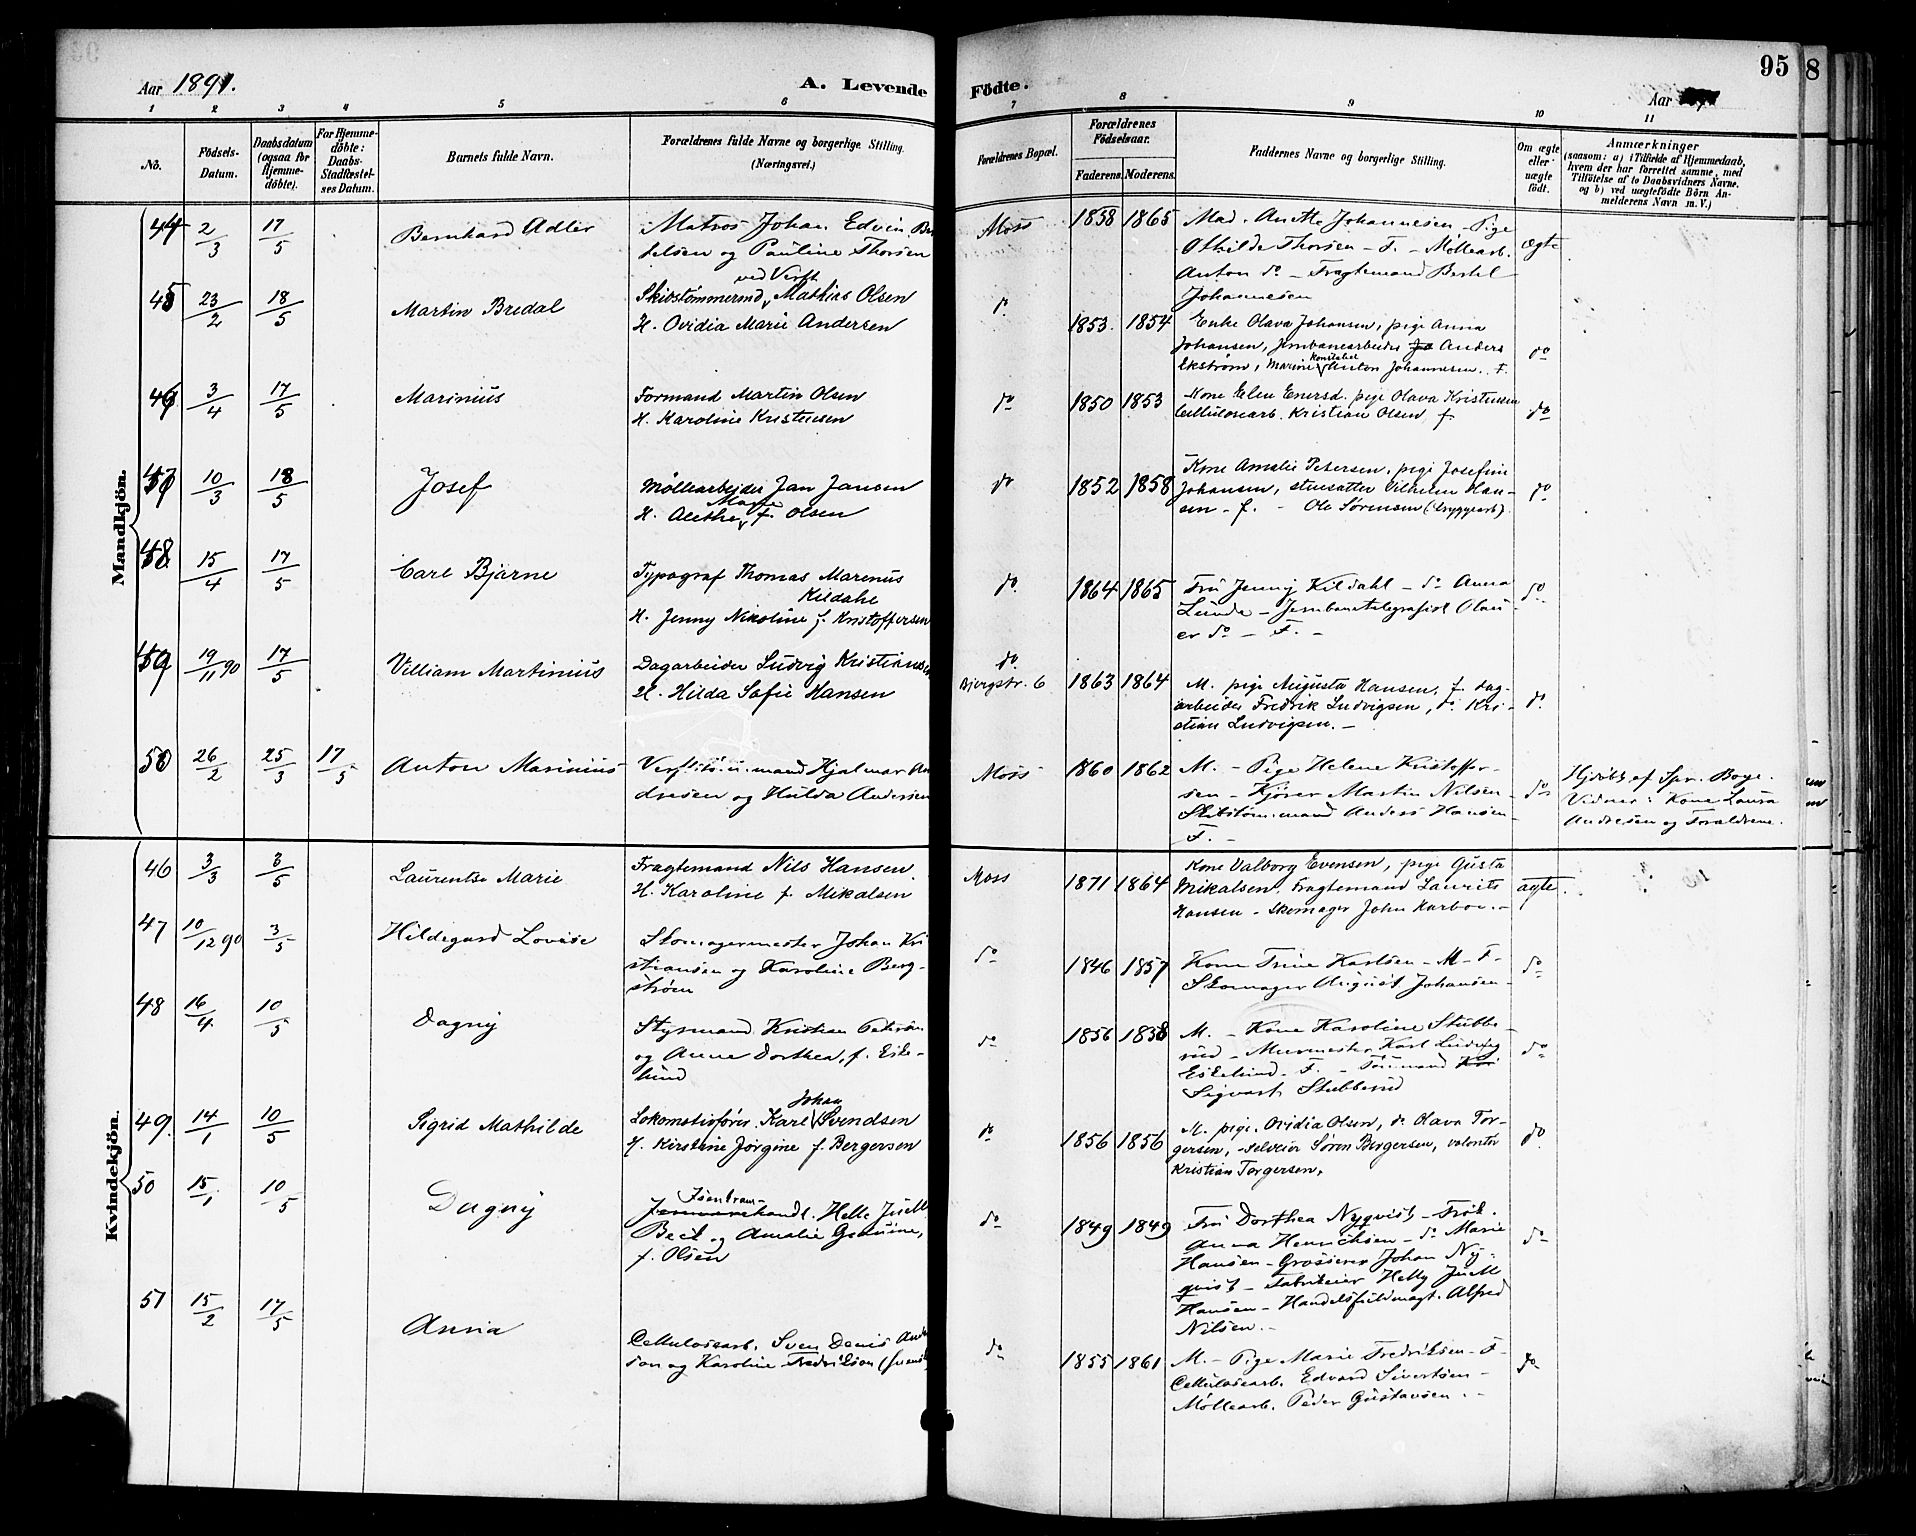 Aar 1891.
A. Levende
Fødte.
Aar
95
8
1 2 3 4 5 6 7 8 9 10 11
No.
Fødsels-
Datum.
Daabsdatum
(ogsaa for
Hjemme-
døbte).
For Hjemme-
døbte:
Daabs-
Stadfæstel-
ses Datum.
Barnets fulde Navn.
Forældrenes fulde Navne og borgerlige Stilling.
(Næringsvei.)
Forældrenes Bopæl.
Forældrenes
Fødselsaar.
Faderens. Moderens.
Faddernes Navne og borgerlige Stilling.
Om ægte
eller
uægte
født.
Anmærkninger
(saasom: a) i Tilfælde af Hjemmedaab,
hvem der har forrettet samme, med
Tilføielse af to Daabsvidners Navne,
og b) ved uægtefødte Børn An-
melderens Navn m. V.)
Mandkjön.
44 2/3 17/5 Bernhard Adler
Matros Johan Edvin Ber
telsen og Pauline Thorsen
Moss 1858 1865
Mad. Anette Johannesen - Pige
Othilde Thorsen - F. - Møllearb.
Anton do - Fragtemand Bertel
Johannesen
ægte
45 23/2 18/5 Martin Bredal
ved Verft
Skibstømmermd Mathias Olsen
H. Ovidia Marie Andersen
do 1853. 1854
Enke Olava Johansen, pige Anna
Johansen, Jernbanearbeider Jo Anders
Ekstrøm, Marine konstabel Anton Johannesen. F.
do
46 3/4 17/5 Marinius
Formand Martin Olsen
H. Karoline Kristensen
do 1850 1853
Kone Elen Enersd. pige Olava Kristensen
Cellulosearb. Kristian Olsen f
do
47 10/3 18/5 Josef
Møllearbejder Jan Jansen
H. Alethe Marie f. Olsen
do 1852 1858
Kone Amalie Petersen, pige Josefine
Johansen, stuesatter Vilhelm Han-
sen - f. - Ole Sørensen (bryggearb).
do
48 15/4 17/5 Carl Bjarne
Typograf Thomas Marenus
Kildahl
H. Jenny Nikoline f. Kristoffersen
do. 1864 1865
Fru Jenny Kildahl - do Anna
Lunde - Jernbanetelegrafist Olau
er do - F. -
do
49 19/11 90 17/5 Villiam Martinius
Dagarbeider Ludvig Kristiansen
H. Hilda Sofie Hansen
do.
Bjergstr. 6 1863 1864
M. pige Augusta Hansen, f. dag-
arbeider Fredrik Ludvigsen, do Kri-
stian Ludvigsen. -
do.
50 26/2 25/3 17/5 Anton Marinius
Verftstø.m.mand Hjalmar An
dresen og Hulda Andersen
Moss 1860 1862
M. - Pige Helene Kristoffer-
sen - Kjører Martin Nilsen -
Skibstøm.mand Anders Hansen -
F. -
do
Hjdøbt af Spr. Boye.
Vidner: Kone Laura
Andresen og Forældrene.
Kvindekjön.
46 3/3 3/5 Laurentse Marie
Fragtemand Nils Hansen.
H. Karoline f. Mikalsen
Moss 1871 1864
Kone Valborg Evensen, pige Gusta
Mikalsen. Fragtemand Laurits
Hansen - Skomager John Karboe. -
ægte.
47 10/12 90 3/5 Hildegard Lovise
Skomagermester Johan Kri
stiansen og Karoline Berg-
strøm
do 1846 1857
Kone Trine Karlsen - M - F -
Skomager August Johansen -
do
48 16/4 10/5 Dagny
Styrmand Kristian Petersen
og Anne Dorthea, f. Eske-
lund
do 1856 1858
M. - Kone Karoline Stubbe-
rud - Murmester Karl Ludvig
Eskelund - F. - Tømmand
Sigvart Stubberud
do
49. 14/1 10/5 Sigrid Mathilde
Johan
Lokomotivfører. Karl Svendsen
H. Kirstine Jørgine f. Bergersen
do 1856 1856
M. pige. Ovidia Olsen, do Olava Tor-
gersen, selveier Søren Bergersen, volontør
Kristian Torgersen,
do
50 15/1 10/5 Dagny
Isenkram-
handl. Helle Juell
Beck og Amalie
f. Olsen
do 1849 1849
Fru Dorthea Nyqvist - Frøk.
Anna Henrichsen - do Marie
Hansen - Grosserer Johan Ny-
qvist - Fabrikeier Helly Juell
Hansen - Handelsfuldmægt. Alfred
Nilsen. -
do
51 15/2 17/5 Anna
Cellulosearb. Sven Denis Ander
son og Karoline Fredrikson (svensk
do 1855 1861
M. - Pige Marie Fredriksen - F -
Cellulosearb. Edvard Sivertsen -
Møllearb. Peder Gustavsen. -
do